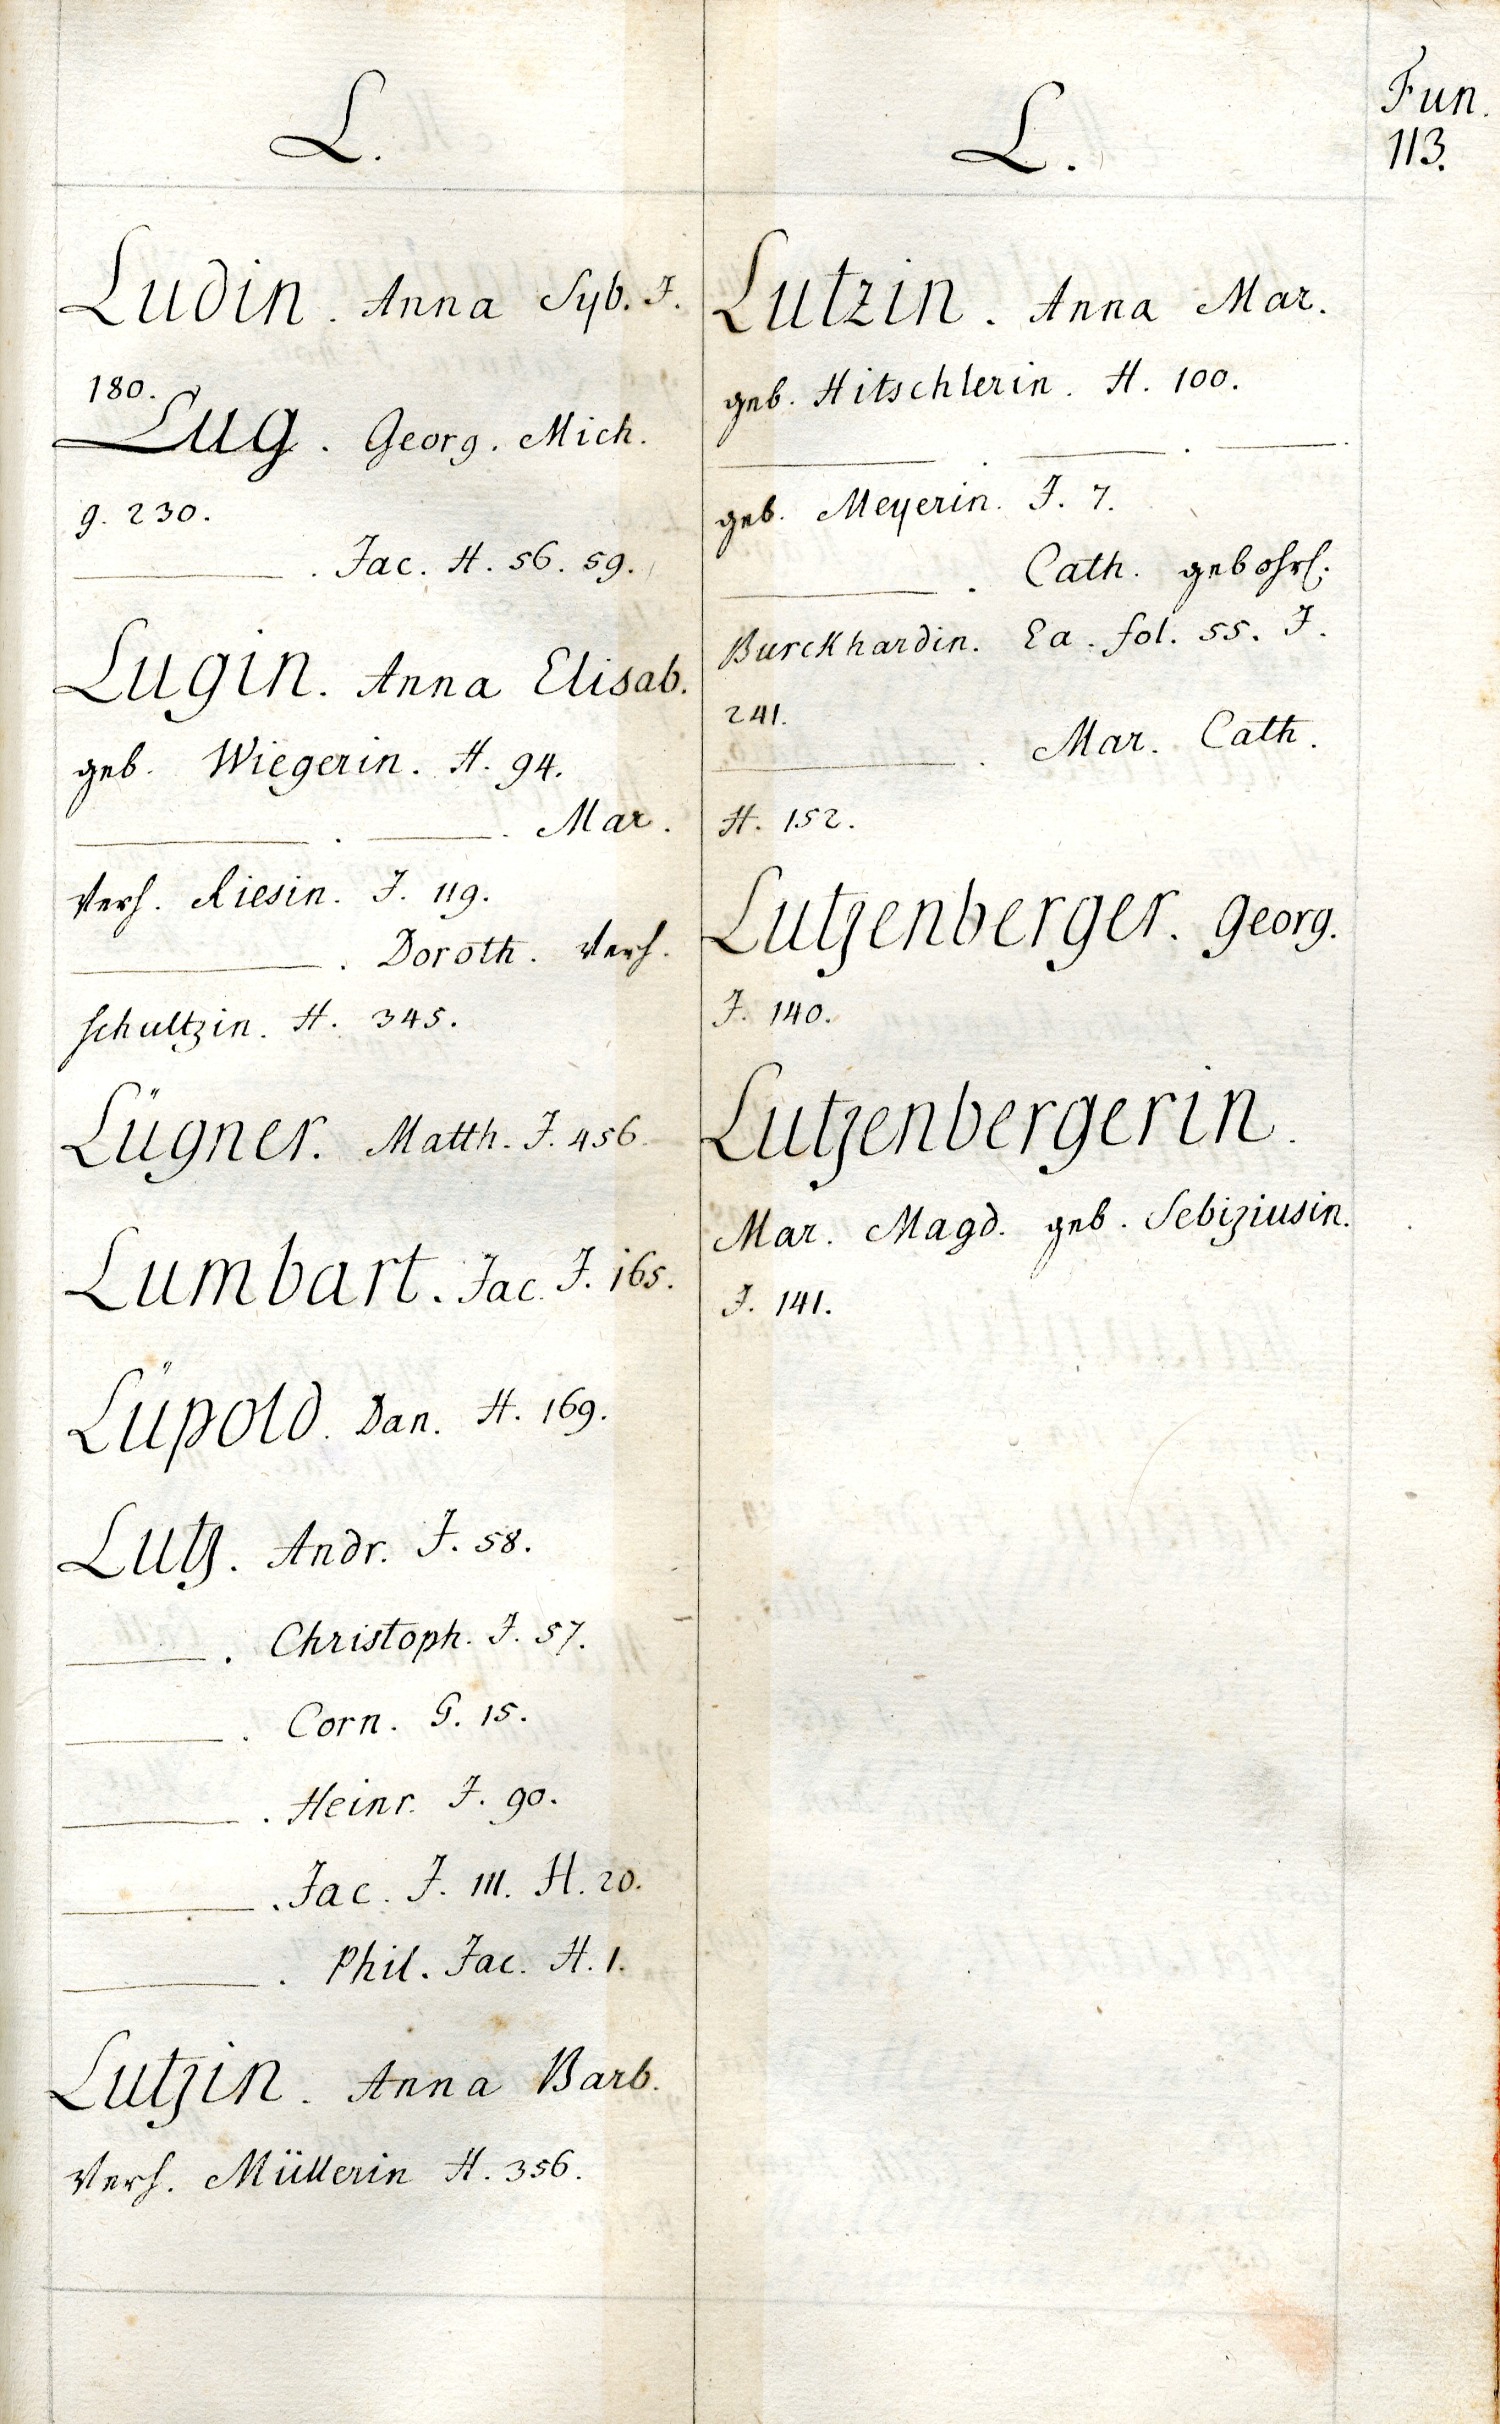 Fun.
113.
L.
Ludin. Anna Syb. J.
180.
Lug. Georg. Mich.
g. 230.
———. Jac. H. 56. 59.
Lugin. Anna Elisab.
geb. Wiegerin. H. 94.
———. ———. Mar.
Verh. Riesin. J. 119.
———. Doroth. Verh.
Schultzin. H. 345.
Lügner. Matth. J. 456.
Lumbart. Jac. J. 165.
Lüpold. Dan. H. 169.
Lutz. Andr. J. 58.
———. Christoph. J. 57.
———. Corn. G. 15.
———. Heinr. J. 90.
———. Jac. J. 111. H. 20.
———. Phil. Jac. H. 1.
Lutzin. Anna Barb.
Verh. Müllerin H. 356.
L.
Lutzin. Anna Mar.
geb. Hitschlerin. H. 100.
———. ———. ———.
geb. Meyerin. J. 7.
———. Cath. gebohrl.
Burckhardin. Ea. fol. 55. J.
241.
———. Mar. Cath.
H. 152.
Lutzenberger. Georg.
J. 140.
Lutzenbergerin.
Mar. Magd. geb. Sebiziusin.
J. 141.